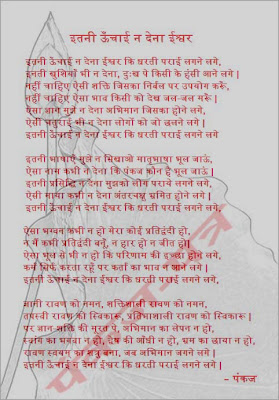 इतनी ऊँचाई न देना ईश्वर
इतनी ऊँचाई न देना ईश्वर कि धरती पराई लगने लगे,
इतनी खुशियाँ भी न देना, दुःख पे किसी के हंसी आने लगे।
नहीं चाहिए ऐसी शक्ति जिसका निर्बल पर उपयोग करूँ,
नहीं चाहिए ऐसा भाव किसी को देख जल-जल मरूँ।
ऐसा ज्ञान मुझे न देना अभिमान जिसका होने लगे,
ऐसी चतुराई भी न देना लोगों को जो छलने लगे।
इतनी ऊँचाई न देना ईश्वर कि धरती पराई लगने लगे
इतनी भाषाएँ मुझे न सिखाओ मातृभाषा भूल जाऊं,
ऐसा नाम कभी न देना कि पंकज कौन है भूल जाऊं।
इतनी प्रसिद्धि न देना मुझको लोग पराये लगने लगे,
ऐसी माया कभी न देना अंतरचक्षु भ्रमित होने लगे।
इतनी ऊँचाई न देना ईश्वर कि धरती पराई लगने लगे,
ऐसा भग्वन कभी न हो मेरा कोई प्रतिद्वंदी हो,
न मैं कभी प्रतिद्वंदी बनूँ, न हार हो न जीत हो।
ऐसा भूल से भी न हो कि परिणाम की इच्छा होने लगे,
कर्म सिर्फ करता रहूँ पर कर्ता का भाव न आने लगे।
इतनी ऊँचाई न देना ईश्वर कि धरती पराई लगने लगे,
ज्ञानी रावण को नमन, शक्तिशाली रावण को नमन,
तपस्वी रावण को स्विकारू, प्रतिभाशाली रावण को स्विकारू।
पर ज्ञान शक्ति की मूरत पे, अभिमान का लेपन न हो,
स्वांग का भगवा न हो, द्वेष की आँधी न हो, भ्रम का छाया न हो,
रावण स्वयम् का शत्रु बना, जब अभिमान जगने लगे।
इतनी ऊँचाई न देना ईश्वर कि धरती पराई लगने लगे,
- पंकज